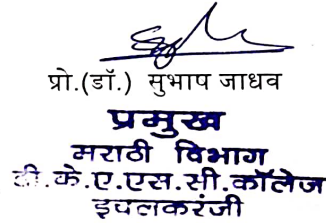 प्रो.(डॉ.) सुभाष जाधव
प्रमुख
मराठी विभाग
डी.के.ए.एस.सी.कॉलेज
इचलकरंजी